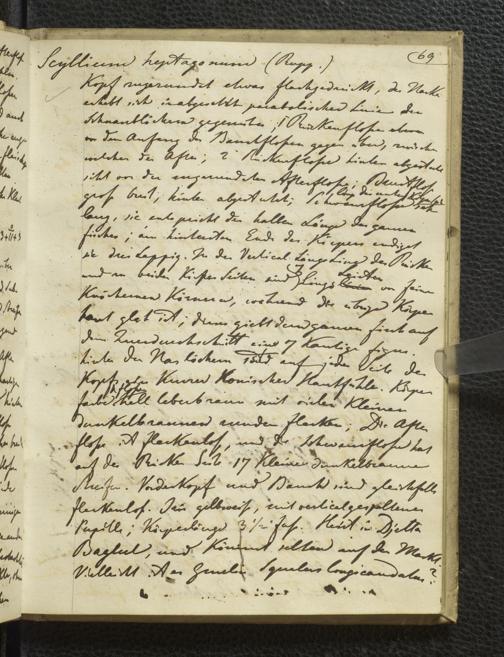 69
Scyllium heptagonum (Rupp.)
Kopf zugerundet etwas flachgedrückt, der Nacken
erhebt sich in abgesetzt parabolischer Linie den
gegenüber; 1 Rückenflosse etwas
vor dem Anfang der Bauchflossen gegen über, zwischen
welchen der After; 2 Rückenflosse hinten abgestutzt
steht vor der zugerundeten Afterflosse, Brustflosse
groß breit, hinten abgestutzt; Schwanzflosse sehr
lang, sie entspricht der halben Länge des ganzen
Fisches; am hintersten Ende des Körpers endigt
sie dreilappig. In der Vertical Längslinie des Rücken
und an beiden Körper Seiten sind Längs von feinen
Knöchernen Körnern, während der übrige Körper
haut glatt ist; dieses giebt dem ganzen Fisch auf
dem Querdurchschnitt eine 7 kantige Figur.
Hinter den Nas löchern sind auf jeder Seite des
Kopfs Kurzer Konischer Hautfühler. Körper
farbe hell leberbraun mit vielen kleinen
dunkelbraunen runden Flecken; Die After
flosse ist fleckenlos, und die Schwanzflosse hat
auf der Rücken Seite 17 kleine dunkelbraune
Streifen. Vorderkopf und Bauch sind gleichfalls
fleckenlos. Iris gelbweiß, mit vertical gespaltener
Pupille; Körperlänge 3 1/2 Fuß. Heißt in Djetta
Baghel, und kommt selten auf den Markt.
Vielleicht ist es Gmelin Squalus longicaudatus?